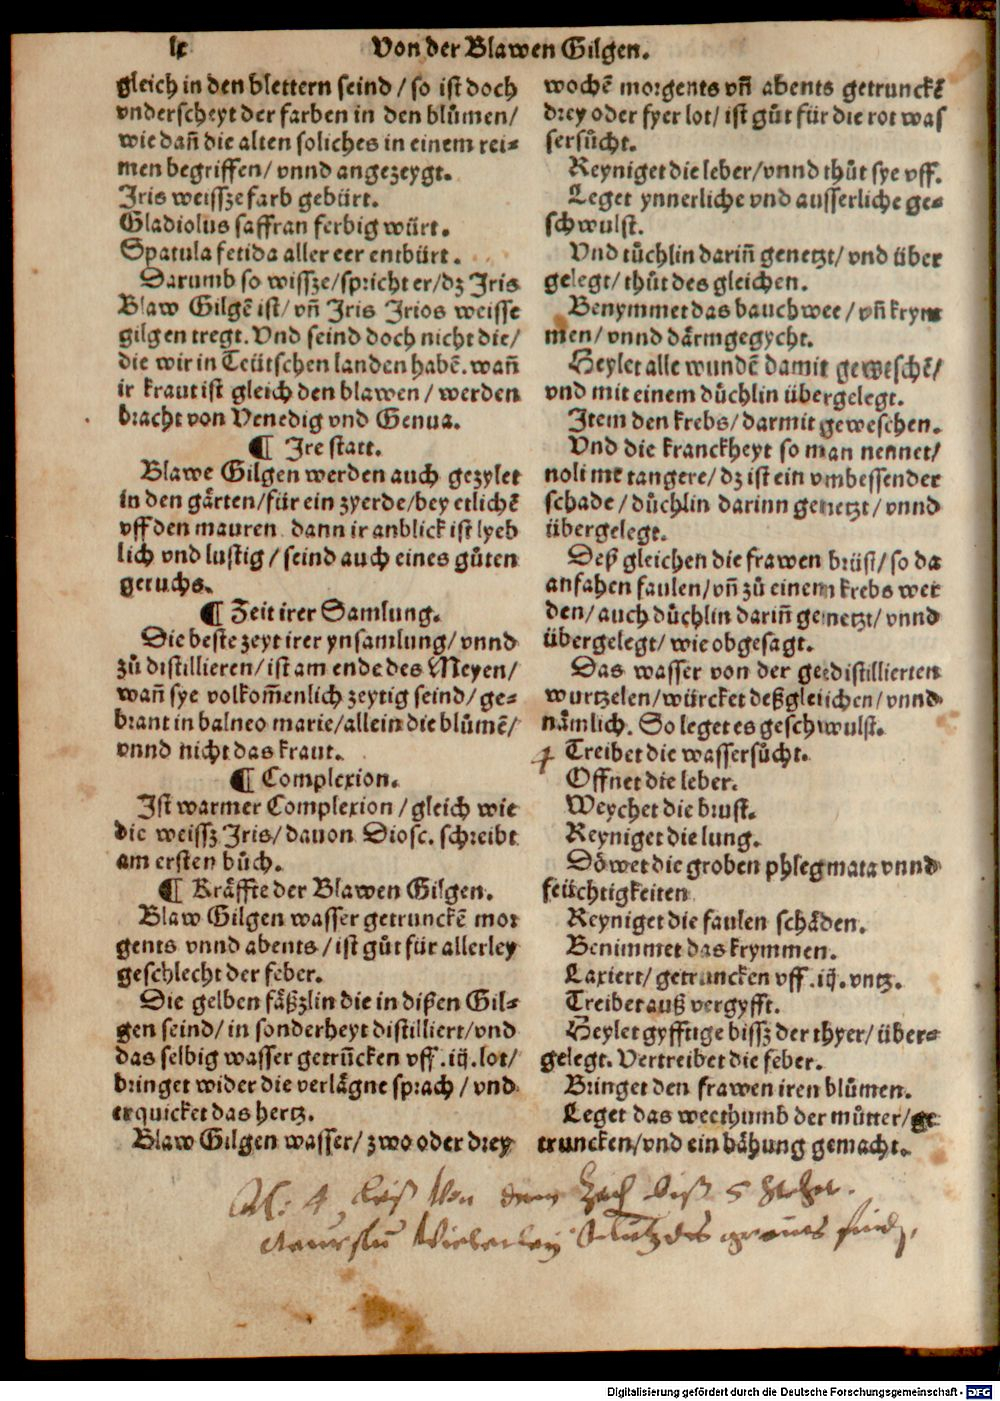 lx
Von der Blawen Gilgen.
gleich in den blettern seind / so ist doch
vnderscheyt der farben in den blůmen /
wie dañ die alten soliches in einem rei-
men begriffen / vnnd angezeygt.
Iris weissze farb gebürt.
Gladiolus saffran ferbig würt.
Spatula fetida aller eer entbürt.
Darumb so wissze / spricht er / dz Iris
Blaw Gilgē ist / vñ Iris Irios weisse
gilgen tregt. Vnd seind doch nicht die /
die wir in Teütschen landen habē. wañ
ir kraut ist gleich den blawen / werden
bracht von Venedig vnd Genua.
¶ Ire statt.
Blawe Gilgen werden auch gezylet
in den gärten / für ein zyerde / bey etlichē
vff den mauren dann ir anblick ist lyeb
lich vnd lustig / seind auch eines gůten
geruchs.
¶ Zeit irer Samlung.
Die beste zeyt irer ynsamlung / vnnd
zů distillieren / ist am ende des Meyen /
wañ sye volkom̃enlich zeytig seind / ge-
brant in balneo marie / allein die blůmē /
vnnd nicht das kraut.
¶ Complexion.
Ist warmer Complexion / gleich wie
die weissz Iris / dauon Diosc. schreibt
am ersten bůch.
¶ Kräffte der Blawen Gilgen.
Blaw Gilgen wasser getrunckē mor
gents vnnd abents / ist gůt für allerley
geschlecht der feber.
Die gelben fäßzlin die in dißen Gil-
gen seind / in sonderheyt distilliert / vnd
das selbig wasser getrūcken vff .ij. lot /
bringet wider die verlägne sprach / vnd
erquicket das hertz.
Blaw Gilgen wasser / zwo oder drey
wochē morgents vñ abents getrunckē
drey oder fyer lot / ist gůt für die rot was
sersůcht.
Reyniget die leber / vnnd thůt sye vff.
Leget ynnerliche vnd ausserliche ge-
schwulst.
Vnd tüchlin dariñ genetzt / vnd über
gelegt / thůt des gleichen.
Benymmet das bauchwee / vñ krym
men / vnnd därmgegycht.
Heylet alle wundē damit geweschē /
vnd mit einem düchlin übergelegt.
Item den krebs / darmit geweschen.
Vnd die kranckheyt so man nennet /
noli me tangere / dz ist ein vmbessender
schade / düchlin darinn genetzt / vnnd
übergelegt.
Deß gleichen die frawen brüst / so da
anfahen faulen / vñ zů einem krebs wer
den / auch düchlin dariñ genetzt / vnnd
übergelegt / wie obgesagt.
Das wasser von der gedistillierten
wurtzelen / würcket deßgleiichen / vnnd
nämlich. So leget es geschwulst.
4 Treibet die wassersůcht.
Offnet die leber.
Weychet die brust.
Reyniget die lung.
Döwet die groben phlegmata vnnd
feüchtigkeiten
Reyniget die faulen schäden.
Benimmet das krymmen.
Laxiert / getruncken vff .ij. vntz.
Treibet auß vergyfft.
Heylet gyfftige bissz der thyer / über-
gelegt. Vertreibet die feber.
Bringet den frawen iren blůmen.
Leget das weethumb der můtter / ge
truncken / vnd ein bähung gemacht.
4 von dem biß 5
Digitalisierung gefördert durch die Deutsche Forschungsgemeinschaft - DFG